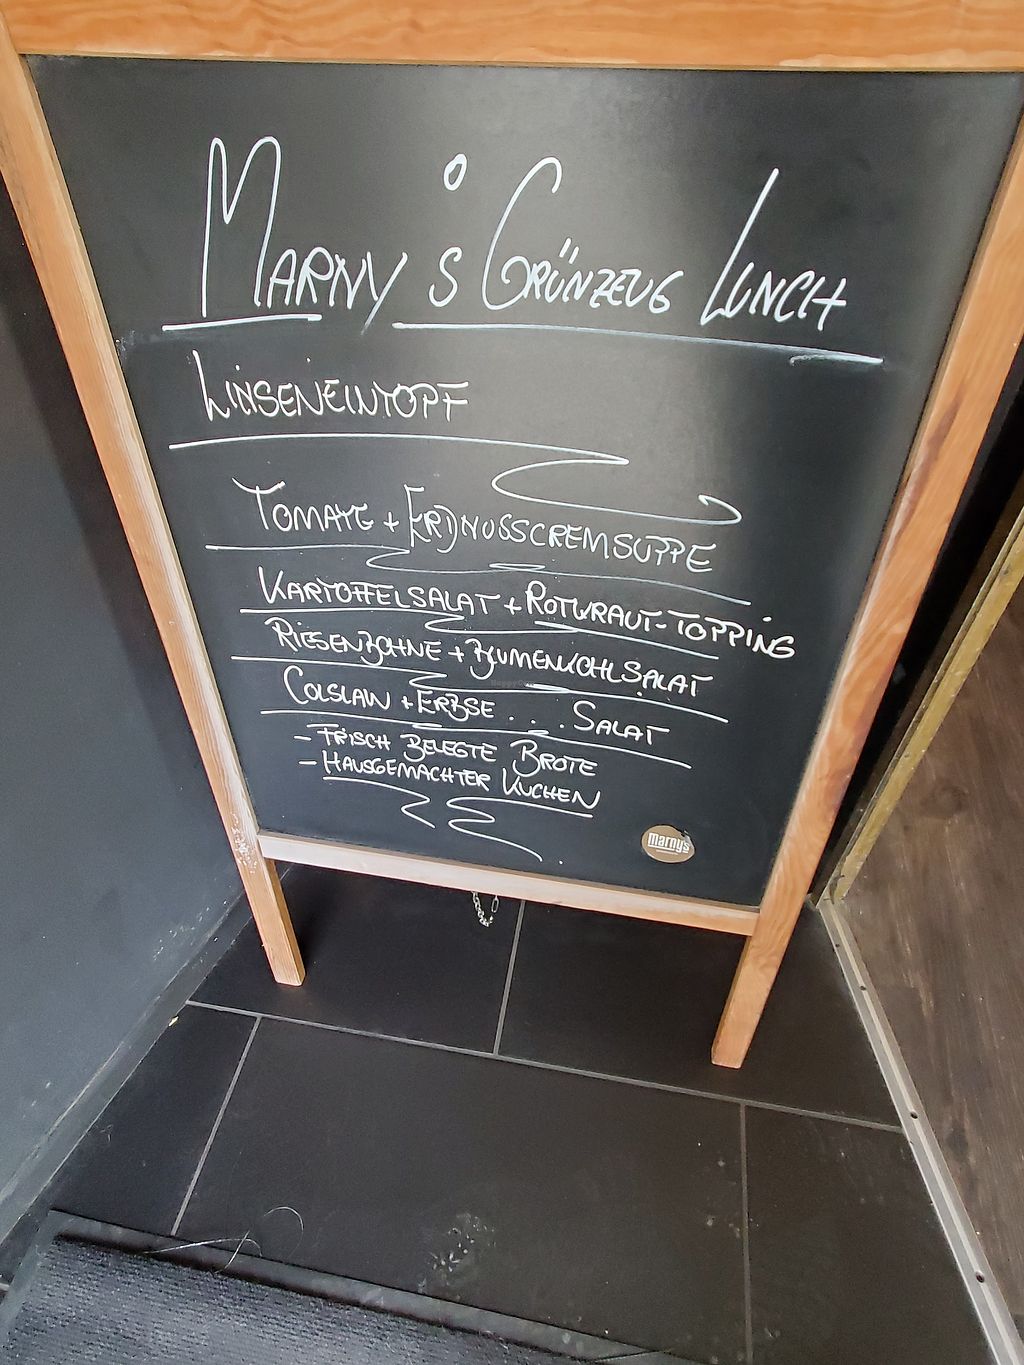 MARNY's GRÜNZEUG LUNCH
LINSENEINTOPF
TOMATE + ERDNUSSCREMSUPPE
KARTOFFELSALAT + ROTKRAUT-TOPPING
RIESENBOHNE + BLUMENKOHLSALAT
COLSLAW + ERBSE . . . SALAT
- FRISCH BELEGTE BROTE
- HAUSGEMACHTER KUCHEN
marny's